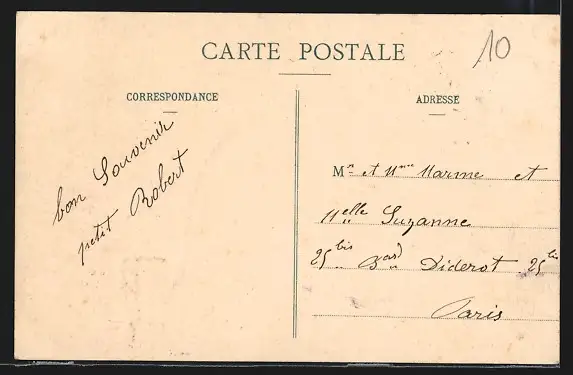 CARTE POSTALE
10
CORRESPONDANCE
ADRESSE
bon Souvenir
petit Robert
Mr et Mme Marme et
Melle Suzanne
25 bis Bard Diderot 25 bis
Paris